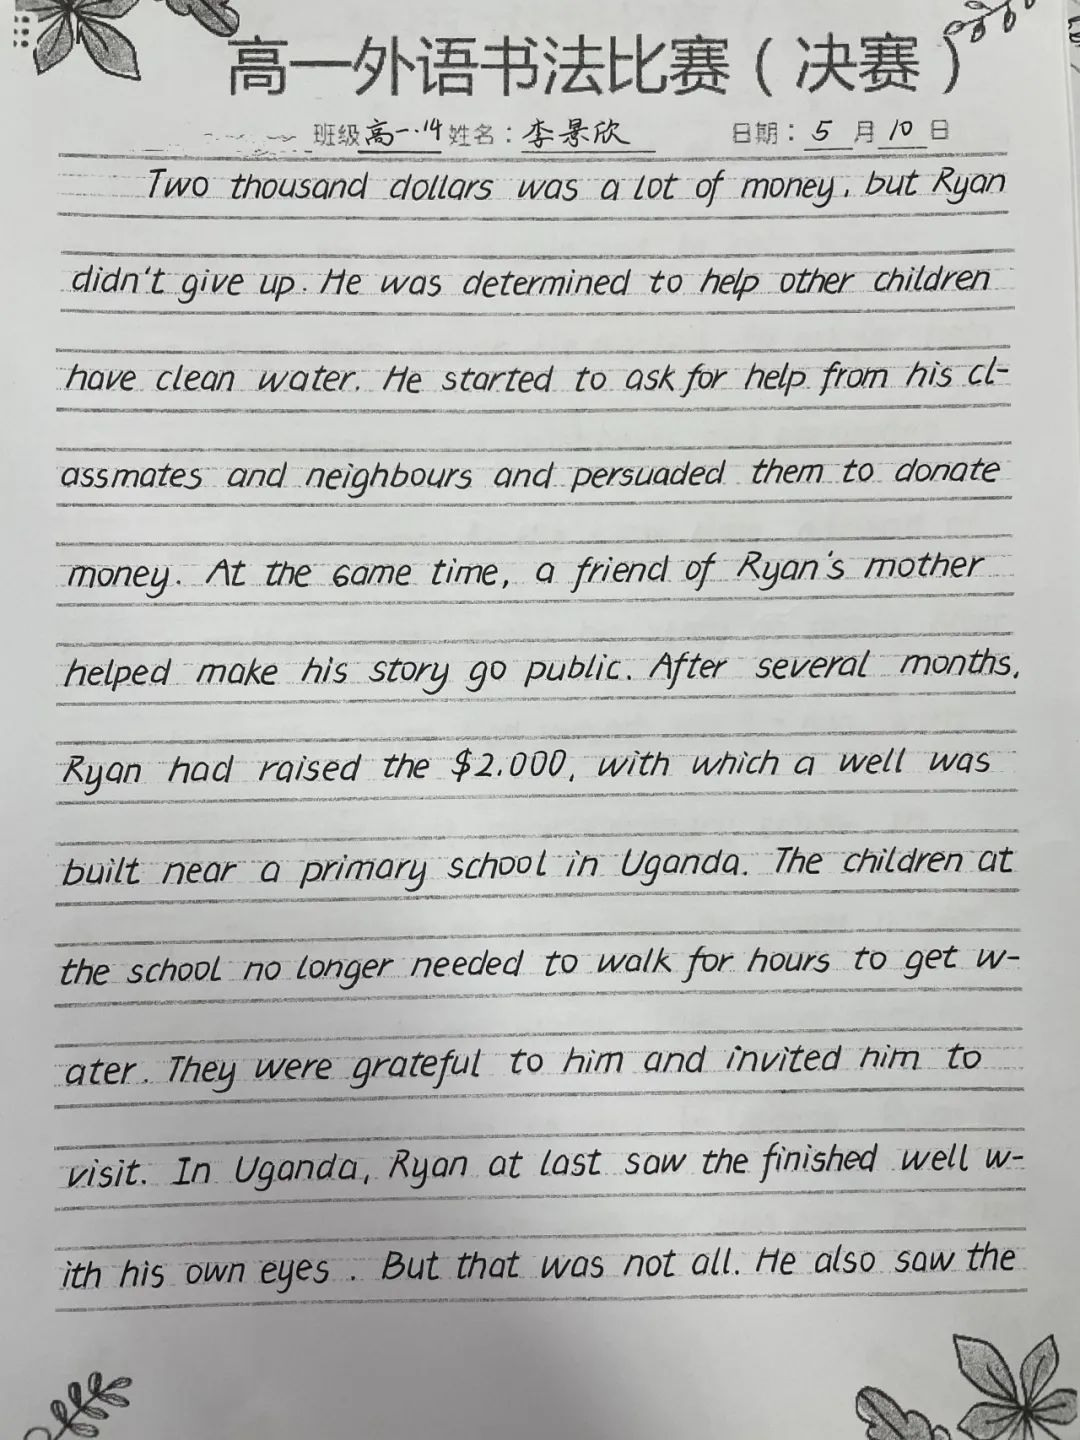 高一外语书法比赛（决赛）
班级高一.14 姓名：李景欣 日期：5月10日
Two thousand dollars was a lot of money, but Ryan
didn't give up. He was determined to help other children
have clean water. He started to ask for help from his cl-
assmates and neighbours and persuaded them to donate
money. At the same time, a friend of Ryan's mother
helped make his story go public. After several months,
Ryan had raised the $2.000, with which a well was
built near a primary school in Uganda. The children at
the school no longer needed to walk for hours to get w-
ater. They were grateful to him and invited him to
visit. In Uganda, Ryan at last saw the finished well w-
ith his own eyes. But that was not all. He also saw the